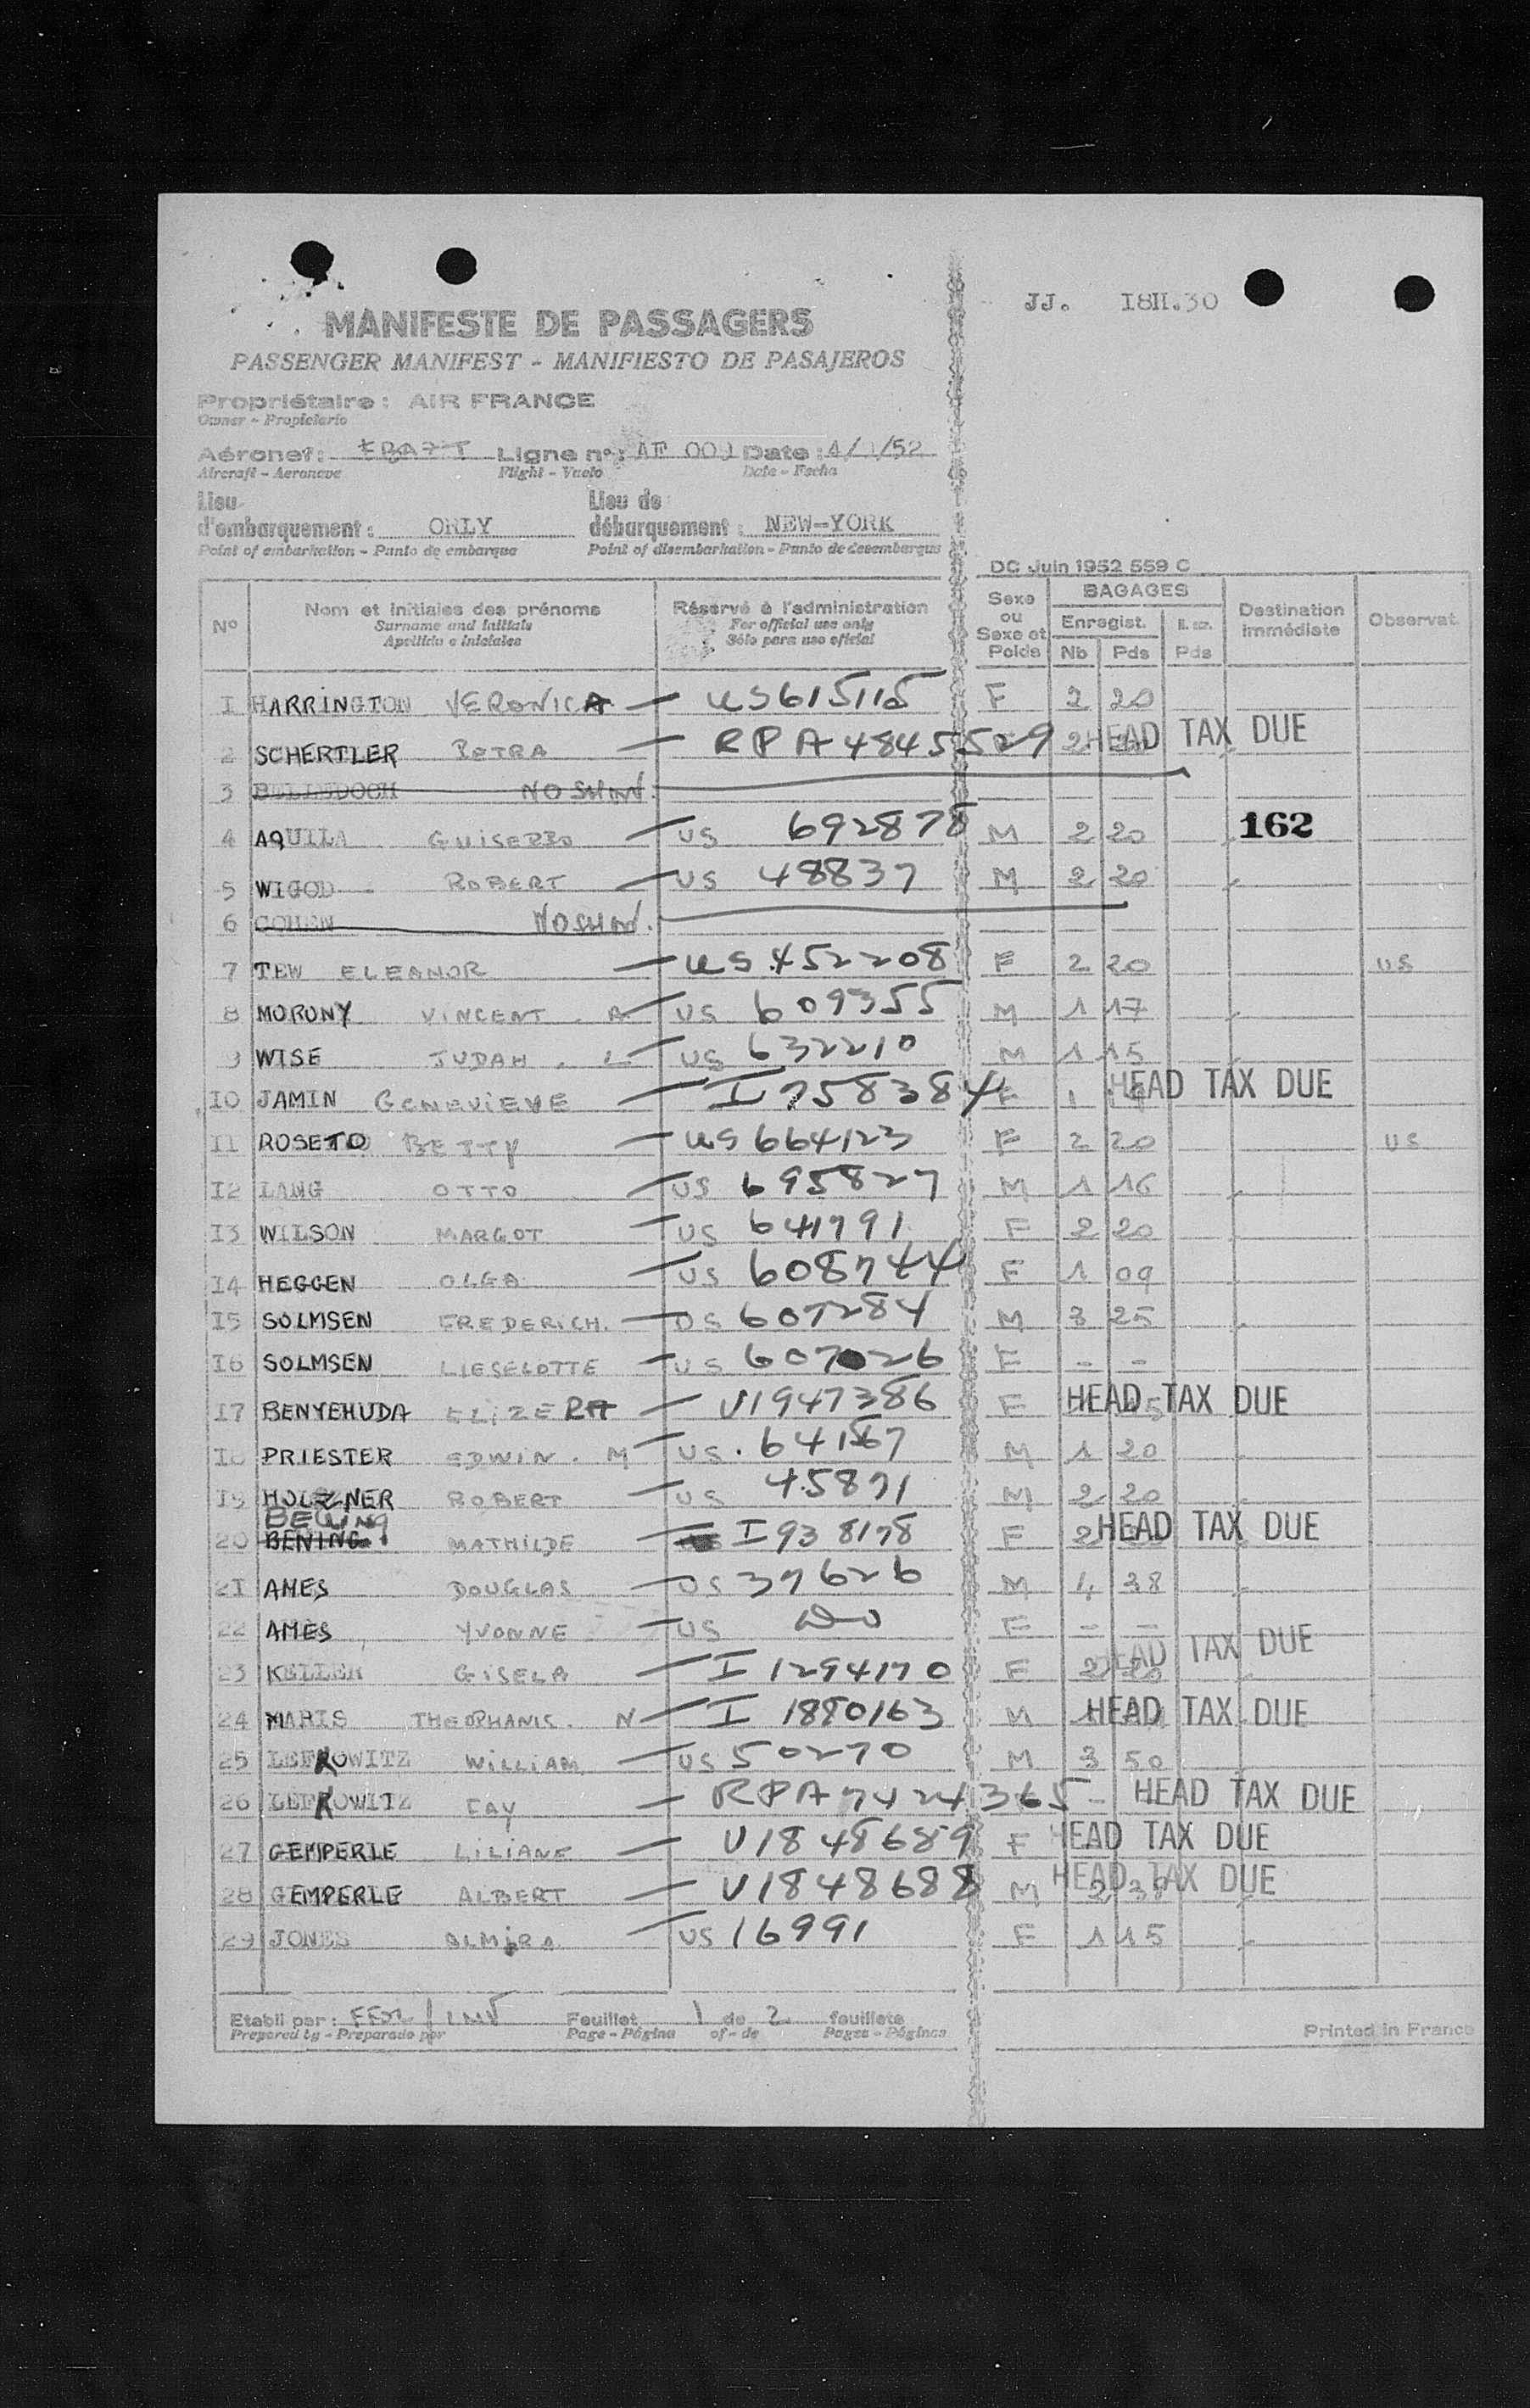 JJ. I8H.30
MANIFESTE DE PASSAGERS
PASSENGER MANIFEST - MANIFIESTO DE PASAJEROS
Propriétaire : AIR FRANCE
Owner - Propietario
Aéronef : Ligne n° : AF 009 Date : /52
Aircraft - Aeronave Flight - Vuelo Date - Fecha
Lieu Lieu de
d'embarquement : ORLY débarquement : NEW-YORK
Point of embarkation - Punto de embarque Point of disembarkation - Punto de desembarque
DC Juin 1952 559 C
N° Nom et initiales des prénoms Réservé à l'administration Sexe ou Sexe et Poids BAGAGES Destination immédiate Observat.
Surname and initials For official use only Enregist.
Apellido e iniciales Sólo para uso oficial Nb Pds Pds
I HARRINGTON VERONICA — US615115 F 2 20
2 SCHERTLER PETRA — RPA4845529 2 HEAD TAX DUE
3 NO SHOW.
4 AQUILA GUISEPPO — US 692878 M 2 20 162
5 WIGOD ROBERT — US 48837 M 2 20
6 COHEN NO SHOW.
7 TEW ELEANOR — US 452208 F 2 20 US
8 MORONY VINCENT . A — US 609355 M 1 17
9 WISE JUDAH . L — US 632210 M 1 15
IO JAMIN GENEVIEVE — I758384 F 1 HEAD TAX DUE
II ROSETO BETTY — US 664123 F 2 20 US
I2 LANG OTTO — US 695827 M 1 16
I3 WILSON MARGOT — US 641791 F 2 20
I4 HEGGEN OLGA — US 608744 F 1 09
I5 SOLMSEN FREDERICH. — US 607284 M 3 25
I6 SOLMSEN LIESELOTTE — US 607026 F - -
I7 BENYEHUDA ELIZERA — V1947386 F HEAD TAX DUE
I8 PRIESTER EDWIN . M — US . 64167 M 1 20
I9 HOLZNER ROBERT — US 45871 M 2 20
BELING
20 BENING MATHILDE — I938178 F 2 HEAD TAX DUE
2I AMES DOUGLAS — US 37626 M 4 38
22 AMES YVONNE — US Do F - -
23 KELLER GISELA — I 1294170 F 2 20 HEAD TAX DUE
24 MARIS THEOPHANIS. N — I 1880163 M HEAD TAX DUE
25 LEFKOWITZ WILLIAM — US 50270 M 3 50
26 LEFKOWITZ FAY — RPA7424365 - HEAD TAX DUE
27 GEMPERLE LILIANE — V1848689 F HEAD TAX DUE
28 GEMPERLE ALBERT — V1848688 M 2 HEAD TAX DUE
29 JONES ALMIRA — US 16991 F 1 15
Etabli par : Feuillet 1 de 2 feuillets
Prepared by - Preparado por Page - Página of - de Pages - Páginas
Printed in France